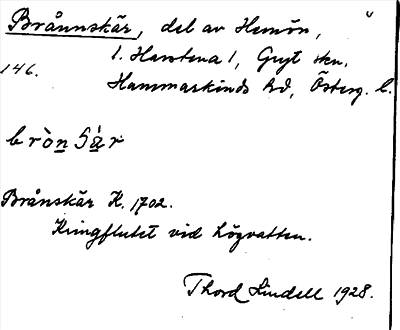 Brånnskär, del av Hemön,
1. Harstena 1, Gryt skn.
146.
Hammarkinds hd, Österg. l.
bròn Sá̱r
Brånskär K. 1702.
Kringflutet vid högvatten.
Thord Lindell 1928.